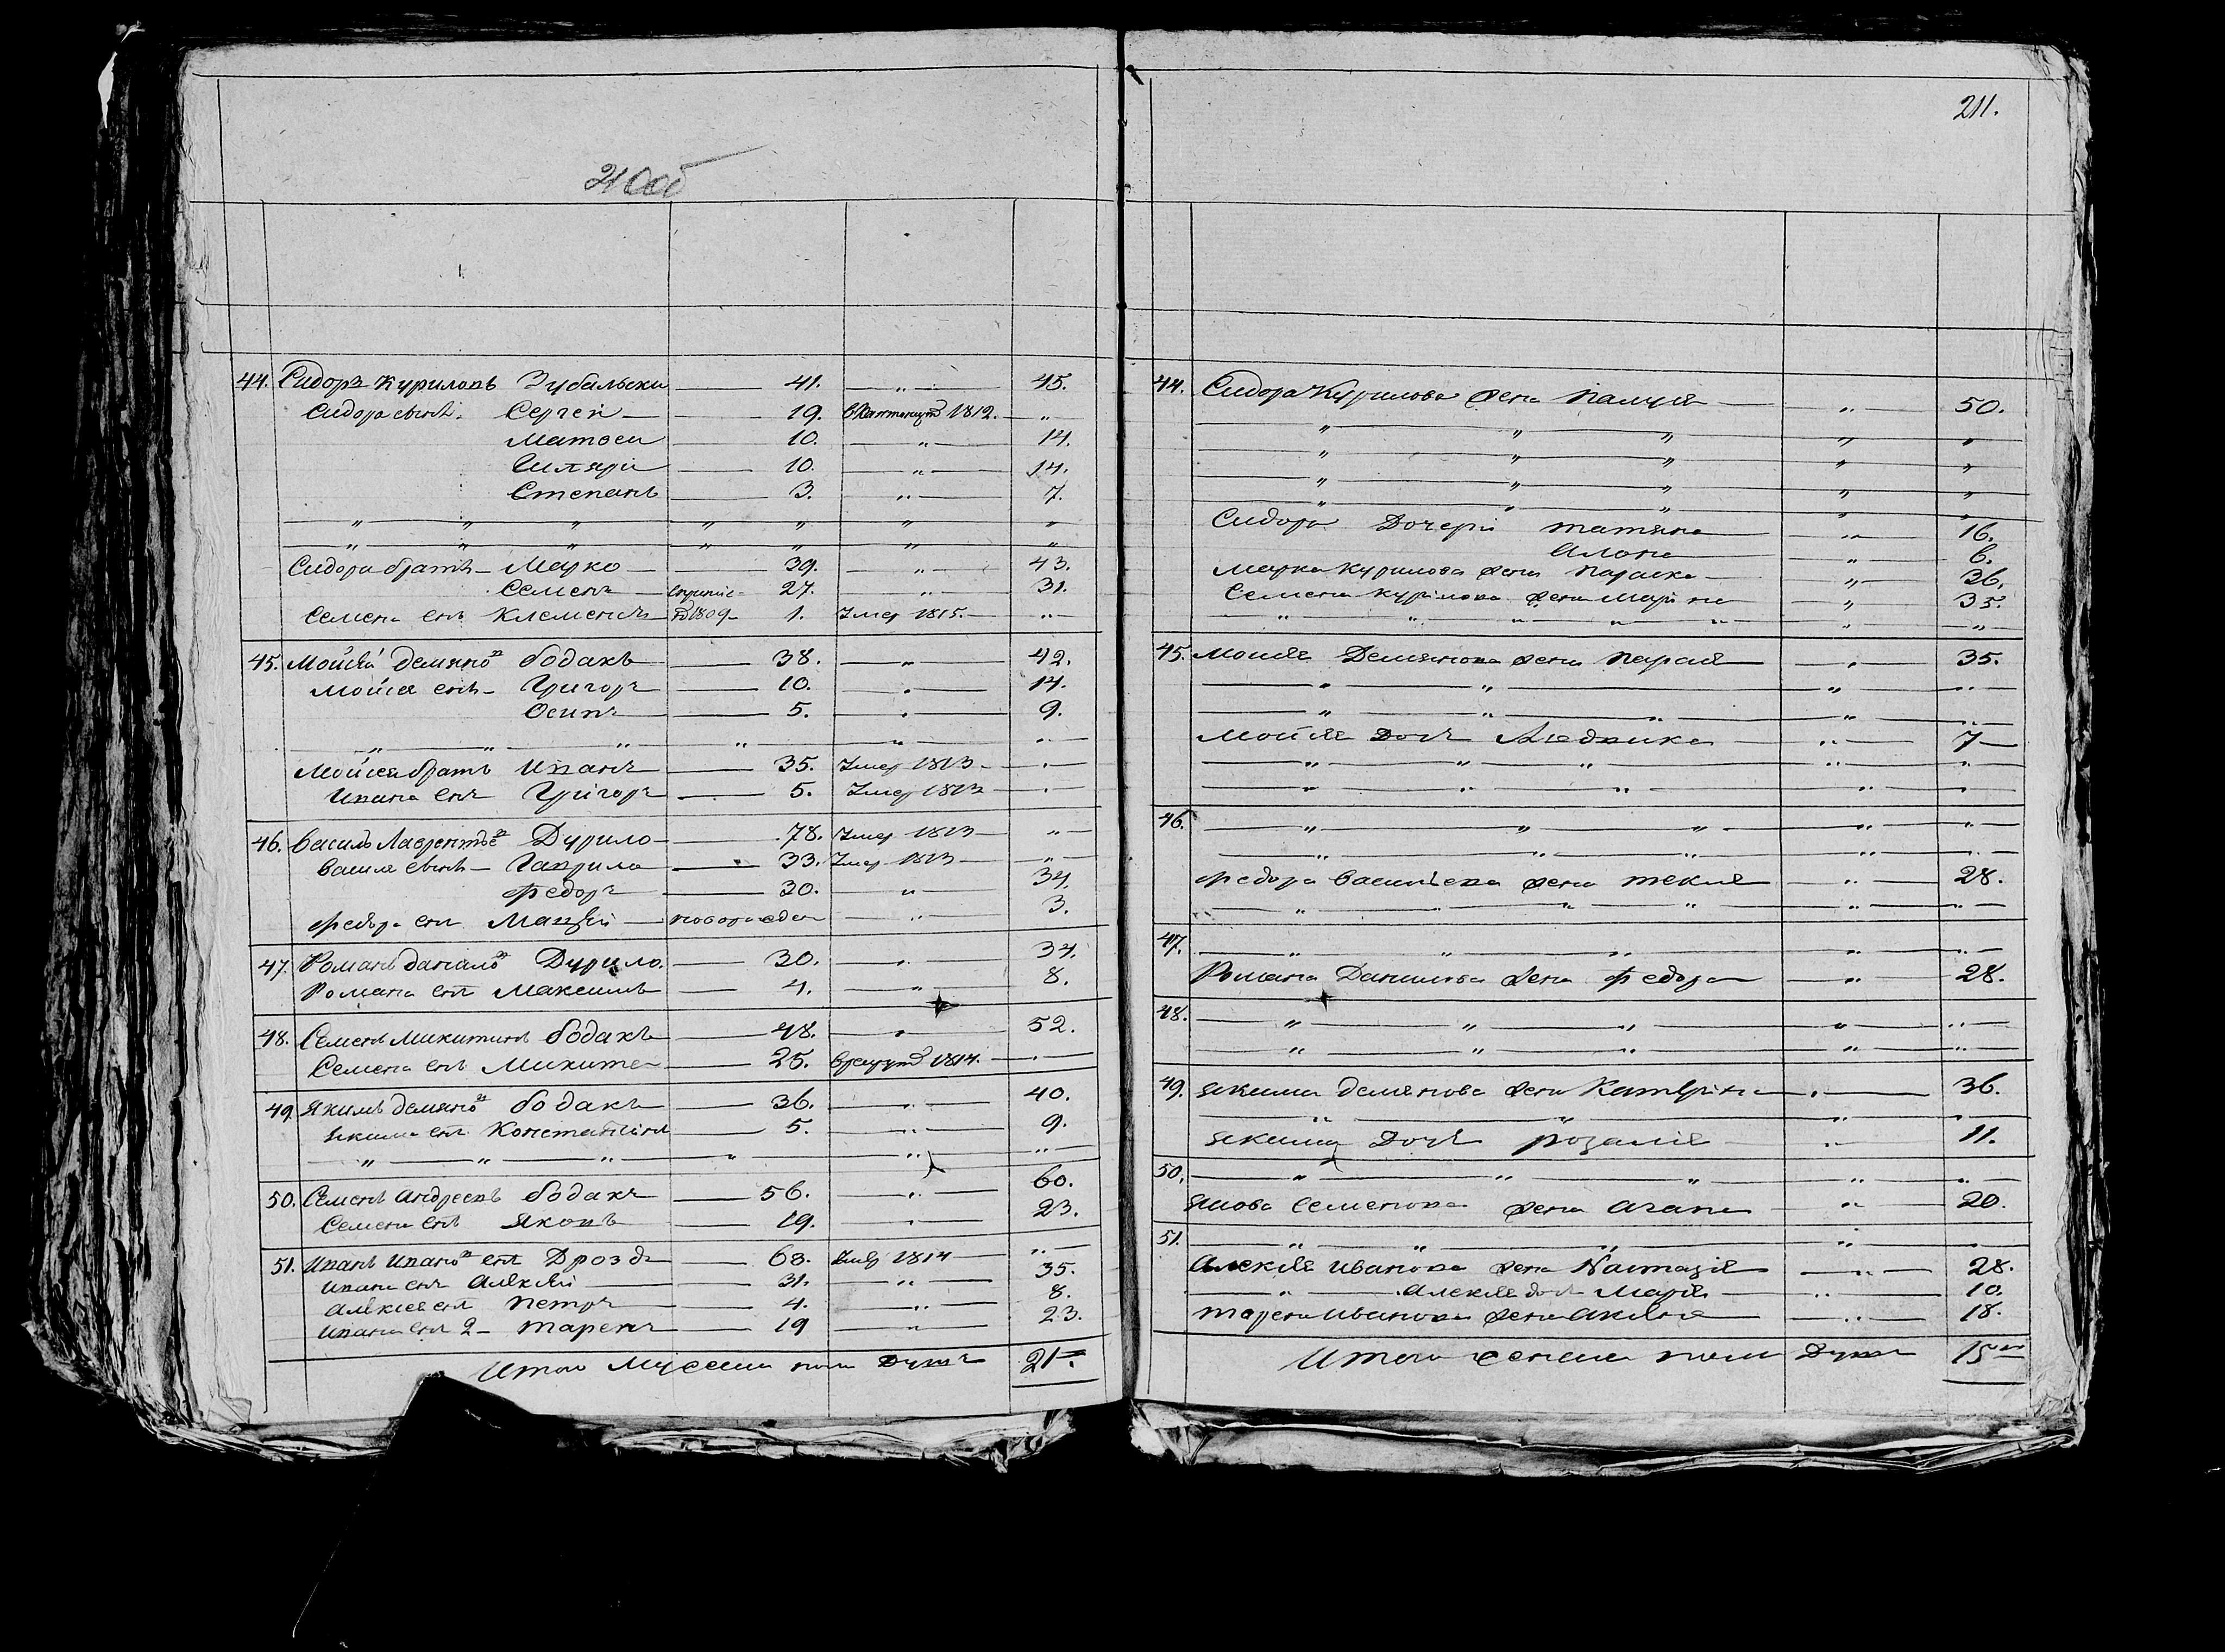 210об
44. Сидоръ Куриловъ Зубальски — 41. — „ — 45.
Сидора снъ. Сергей — 19. 1812. „
Матвеи — 10. — „ — 14.
Иляри — 10. — „ — 14.
Степанъ — 3. — „ — 7.
„ „ „ „ „ „ „
„ „ „ „ „ „ „
Сидора братъ — Марко — 39. — „ — 43.
Семенъ — 27. — „ — 31.
Семена снъ Клементъ — 1809 — 1. Умер 1815. — „
45. Мойсей Демяно въ бодакъ — 38. — „ — 42.
Мойсея снъ — Григоръ — 10. — „ — 14.
Осипъ — 5. — „ — 9.
„ „ „ „ „ „
Мойсея братъ Иванъ — 35. Умер 1813 — „
Ивана снъ Григоръ — 5. Умер 1813 — „
46. Василь Лаврентье въ Дурило — 78. Умер 1813 — „
Василя снъ — Гаврила — 33. Умер 1813 — „
Федоръ — 30. „ 34.
Федора снъ Матвей — новорожден — „ — 3.
47. Романъ Данило въ Дурило. — 30. — „ — 34.
Романа снъ Максимъ — 4. — „ — 8.
48. Семенъ Микитинъ бодакъ — 48. — „ — 52.
Семена снъ Микита — 25. Врекрут 1814. — „
49. Якимъ Демяно въ бодакъ — 36. — „ — 40.
Якима снъ Константинъ — 5. — „ — 9.
„ „ „ „ „ „
50. Семенъ Андреевъ бодакъ — 56. — „ — 60.
Семена снъ Яковъ — 19. — „ — 23.
51. Иванъ Ивано въ снъ Дроздъ — 63. Умер 1814 — „
Ивана снъ Алексѣй — 31. — „ — 35.
Алексея снъ Петръ — 4. — „ — 8.
Ивана снъ 2 — Таренъ — 19 — „ — 23.
Итого Мужеска пола Душъ 21
211.
44. Сидора Курилова жена — „ — 50.
„ „ „ „ „
„ „ „ „ „
„ „ „ „ „
„ „ „ „ „
Сидора Дочери Татяна — „ — 16.
Алона — „ — 6.
Марка Курилова жена Параска — „ — 36.
Семена Курилова жена Марина — „ — 35.
„ „ „ „ „ „ „
45. Мойсея Демянова жена Парася — „ — 35.
„ „ „ „
„ „ „ „ „
Мойсея Дочъ Людвика — „ — 7
„ „ „ „ „
„ „ „ „ „
46. „ „ „ „ „
„ „ „ „ „
Федора Васильева жена Текля — „ — 28.
„ „ „ „ „ „
47. „ „ „ „ „
Романа Данилова жена Федора — „ — 28.
48. „ „ „ „ „
„ „ „ „ „
49. Якима Демянова жена Катерина — „ — 36.
„ „ „ „
Якима Дочъ Розалія — „ — 11.
50. „ „ „ „ „
Якова Семенова жена Агапа — „ — 20.
51. „ „ „ „ „
Алексея Иванова жена Настазія — „ — 28.
„ Алексея дочъ Марія — „ — 10.
Тарена Иванова жена Акилина — „ — 18.
Итого женска пола Душъ 15